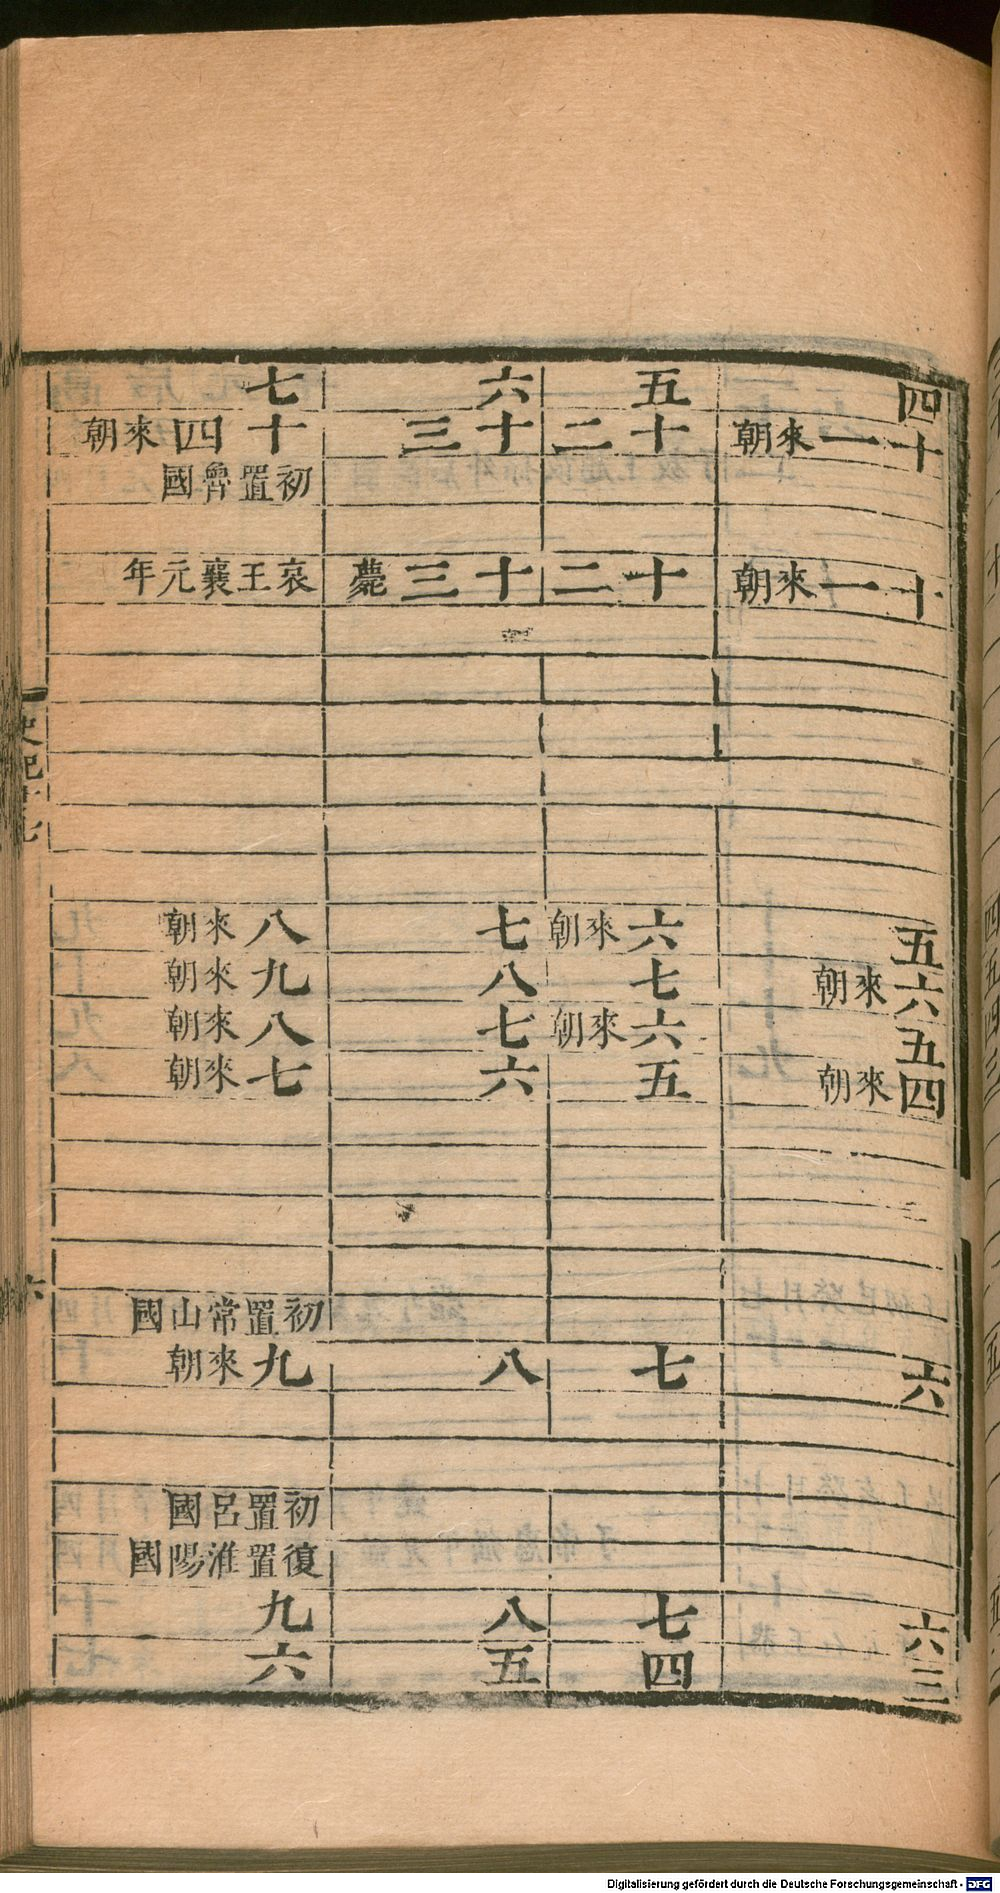 四
十一來朝
十一來朝
五
六來朝
五
四來朝
六
六
三
五
十二
十二
六來朝
七
六來朝
五
七
七
四
六
十三
十三薨
七
八
七
六
八
八
五
七
十四來朝
初置魯國
哀王襄元年
八來朝
九來朝
八來朝
七來朝
初置常山國
九來朝
初置呂國
復置淮陽國
九
六
史記十七
六
Digitalisierung gefördert durch die Deutsche Forschungsgemeinschaft - DFG